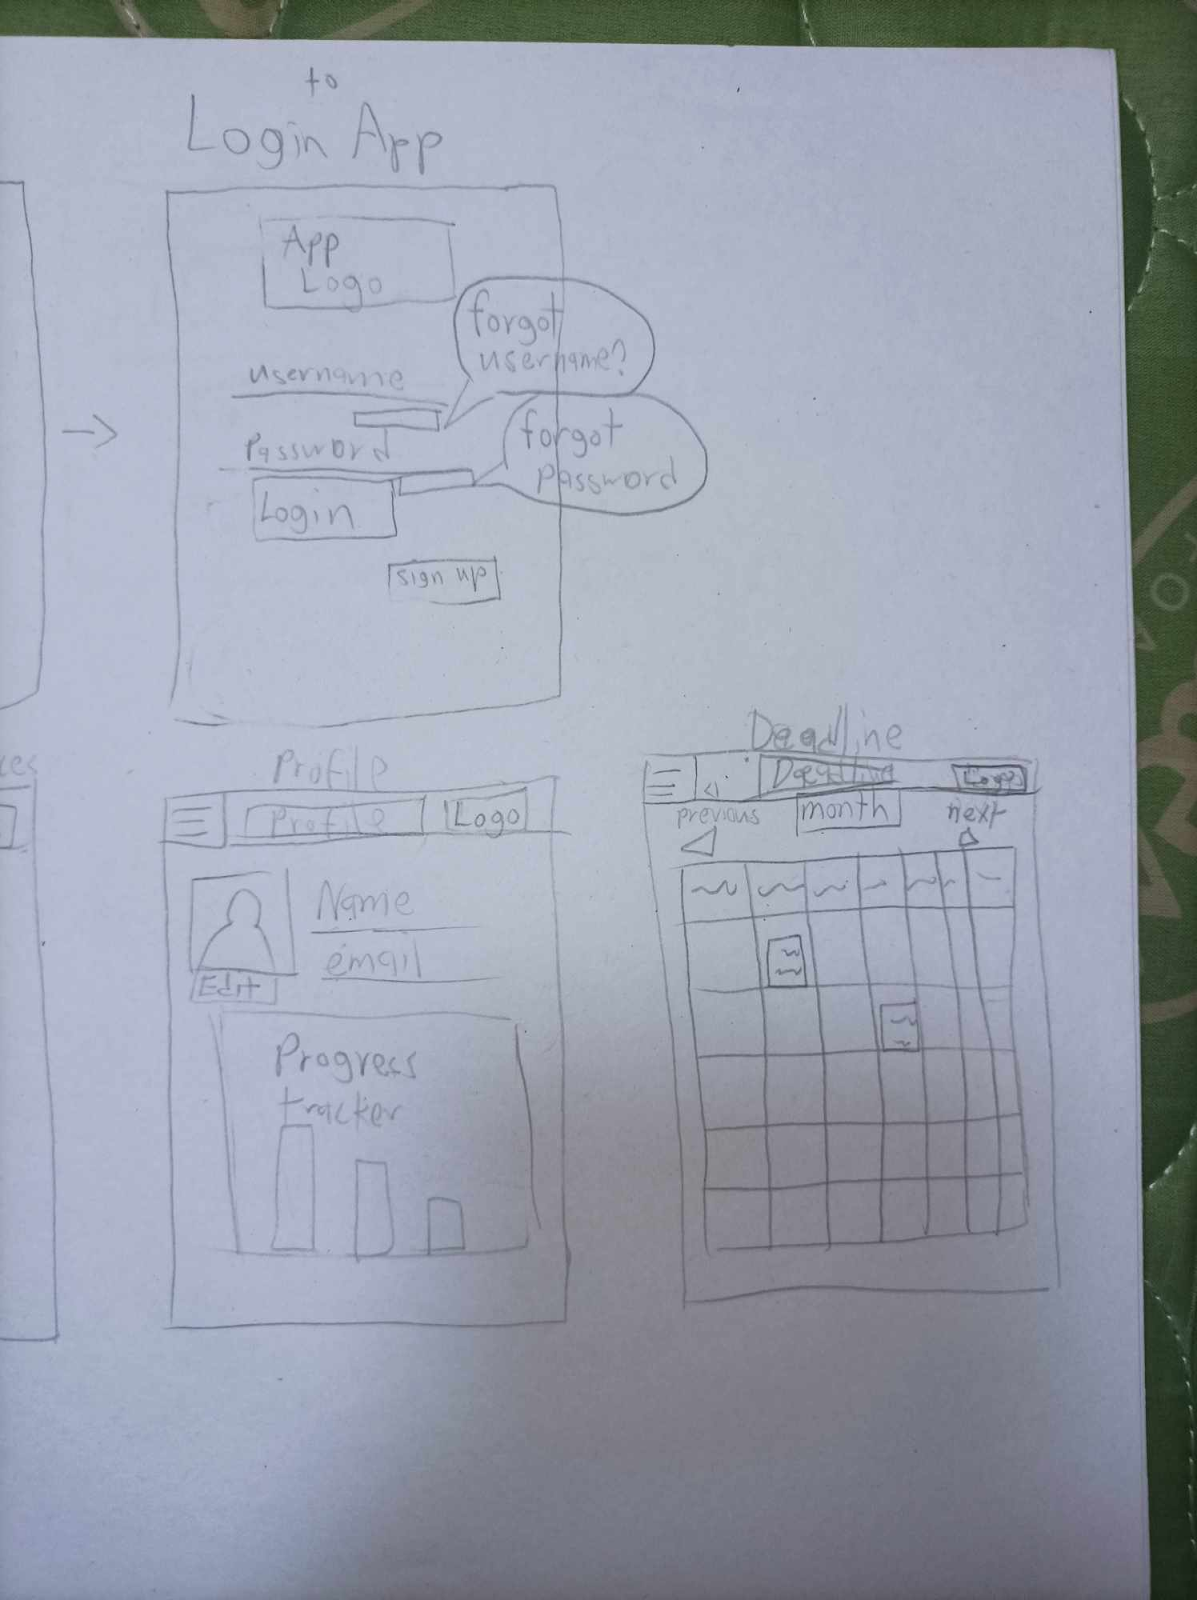 to
Login App
App
Logo
forgot
username?
username
forgot
password
Password
Login
sign up
Profile
Profile
Logo
Name
email
Edit
Progress
tracker
Deadline
Deadline
Logo
previous
month
next